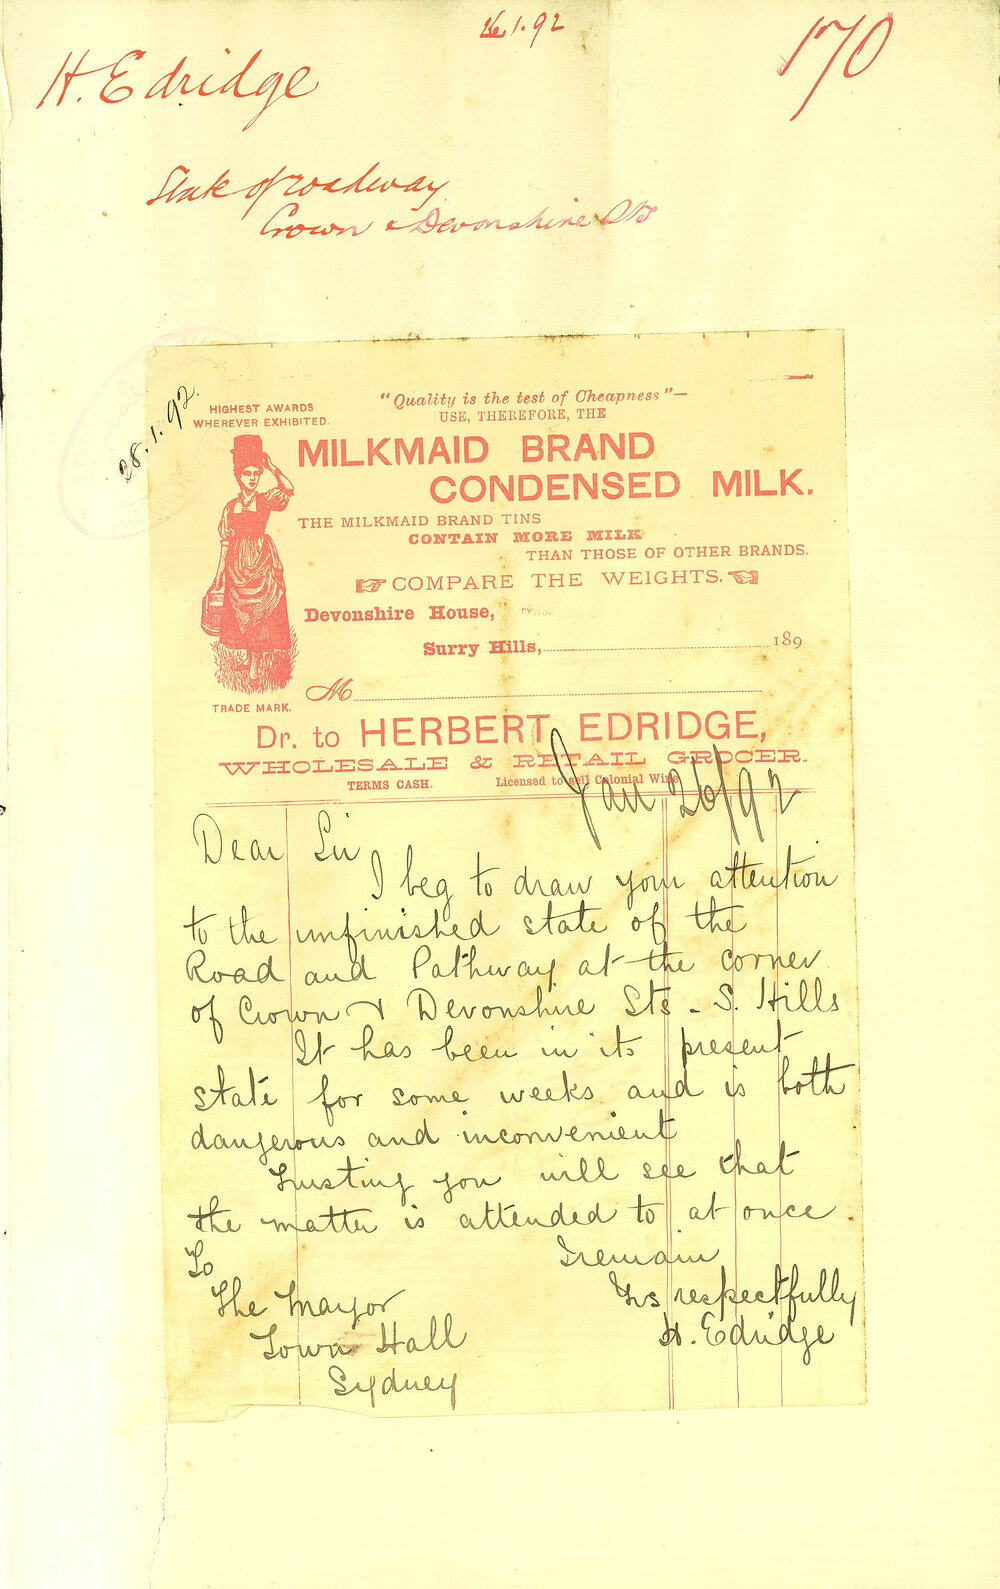 26.1.92
170
H. Edridge
State of roadway
Crown & Devonshire Sts
28.1.92.
HIGHEST AWARDS
WHEREVER EXHIBITED.
"Quality is the test of Cheapness"—
USE, THEREFORE, THE
MILKMAID BRAND
CONDENSED MILK.
THE MILKMAID BRAND TINS
CONTAIN MORE MILK
THAN THOSE OF OTHER BRANDS.
COMPARE THE WEIGHTS.
Devonshire House,
Surry Hills, 189
M
TRADE MARK.
Dr. to HERBERT EDRIDGE,
WHOLESALE & RETAIL GROCER.
TERMS CASH. Licensed to sell Colonial Wine
Jan 26/92
Dear Sir
I beg to draw your attention
to the unfinished state of the
Road and Pathway at the corner
of Crown & Devonshire Sts - S. Hills
It has been in its present
state for some weeks and is both
dangerous and inconvenient
Trusting you will see that
the matter is attended to at once.
I remain
Yrs respectfully
H. Edridge
To
The Mayor
Town Hall
Sydney